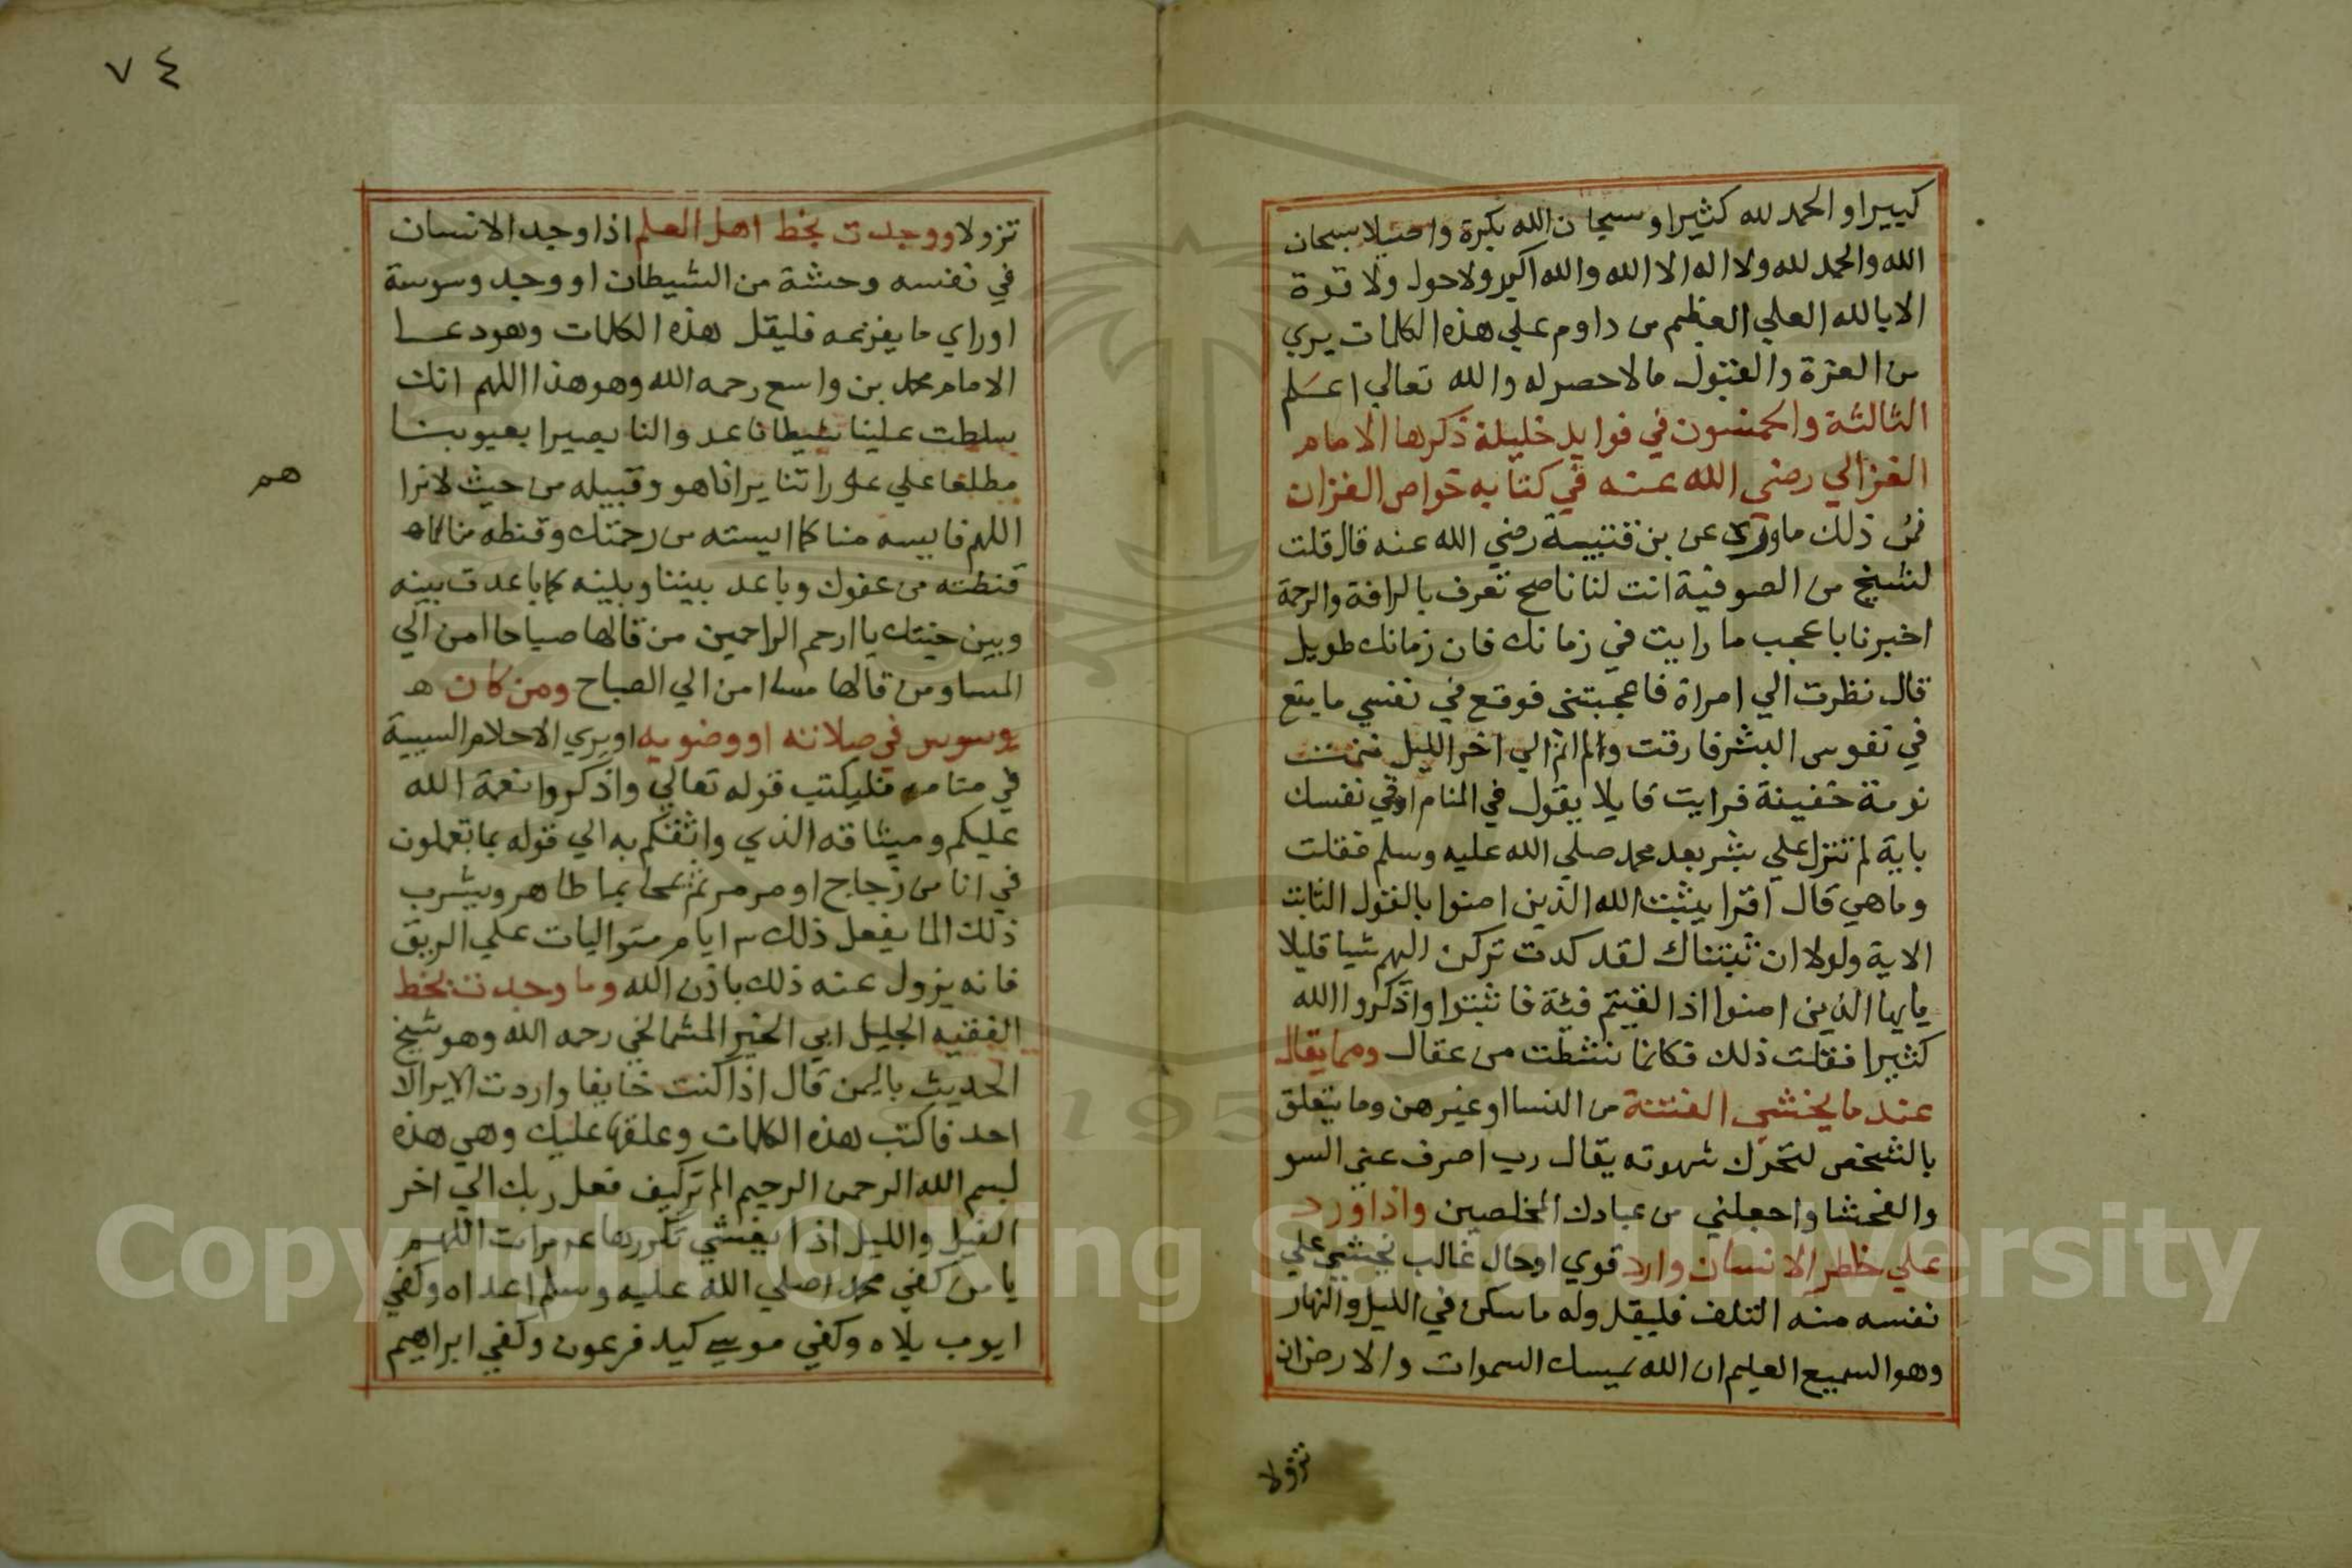 كبيرا و الحمد لله كثيرا و سبحان الله بكرة واصيلا سبحان
الله والحمد لله ولا اله الا الله والله اكبر ولا حول ولا قوة
الا بالله العلي العظيم من داوم علي هذه الكلمات يري
من العزة والقبول مالا حصر له والله تعالي اعلم
الثالثة والخمسون في فوايد جليلة ذكرها الامام
الغزالي رضي الله عنه في كتابه خواص القران
فمن ذلك ما وري عن بن قتيبة رضي الله عنه قال قلت
لشيخ من الصوفية انت لنا ناصح تعرف بالرافة والرحمة
اخبرنا باعجب ما رايت في زمانك فان زمانك طويل
قال نظرت الي امراة فاعجبتني فوقع في نفسي ما يقع
في نفوس البشر فارقت ولم انم الي اخر الليل فنمت
نومة خفيفة فرايت قايلا يقول في المنام اوقي نفسك
باية لم تنزل علي بشر بعد محمد صلي الله عليه وسلم فقلت
وما هي قال اقرا يثبت الله الذين امنوا بالقول الثابت
الاية ولولا ان ثبتناك لقد كدت تركن اليهم شيا قليلا
يايها الذين امنوا اذا لقيتم فئة فاثبتوا واذكروا الله
كثيرا فقلت ذلك فكانما نشطت من عقال ومما يقال
عند ما يخشي الفتنة من النسا او غيرهن وما يتعلق
بالشخص لتحرك شهوته يقال رب اصرف عني السو
والفحشا واجعلني من عبادك المخلصين واذا ورد
علي خطر الانسان وارد قوي اوحال غالب يخشي علي
نفسه منه التلف فليقل وله ما سكن في الليل والنهار
وهو السميع العليم ان الله يمسك السموات والارض ان
تزولا
٧٤
تزولا ووجدت بخط اهل العلم اذا وجد الانسان
في نفسه وحشة من الشيطان او وجد وسوسة
اوراي ما يفزعه فليقل هذه الكلمات وهو دعا
الامام محمد بن واسع رحمه الله وهو هذا اللهم انك
سلطت علينا شيطانا عدوا لنا بصيرا بعيوبنا
مطلعا علي عوراتنا يرانا هو وقبيله من حيث لا نرا
هم
اللهم فايسه منا كما ايسته من رحمتك وقنطه منا كما
قنطته من عفوك وباعد بيننا وبينه كما باعدت بينه
وبين جنتك يا ارحم الراحمين من قالها صباحا امن الي
المسا ومن قالها مسا امن الي الصباح ومن كان
يوسوس في صلاته او وضويه او يري الاحلام السيية
في منامه فليكتب قوله تعالي واذكروا نعمة الله
عليكم وميثاقه الذي واثقكم به الي قوله بما تعملون
في انا من زجاج او مرمر ثم يمحا بما طاهر ويشرب
ذلك الما يفعل ذلك ٣ ايام متواليات علي الريق
فانه يزول عنه ذلك باذن الله وما وجدت بخط
الفقيه الجليل ابي الخير الشماخي رحمه الله وهو شيخ
الحديث باليمن قال اذا كنت خايفا واردت الا يراك
احد فاكتب هذه الكلمات وعلقها عليك وهي هذه
بسم الله الرحمن الرحيم الم تركيف فعل ربك الي اخر
الفيل والليل اذا يغشي تكررها مرات اللهم
يا من كفي محمدا صلي الله عليه وسلم اعداه وكفي
ايوب بلاه وكفي موسي كيد فرعون وكفي ابراهيم
Copyright © King Saud University